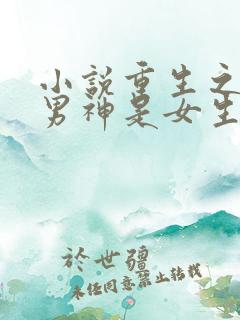 小說重生之
男神是女生
於世疆
未经同意禁止转载